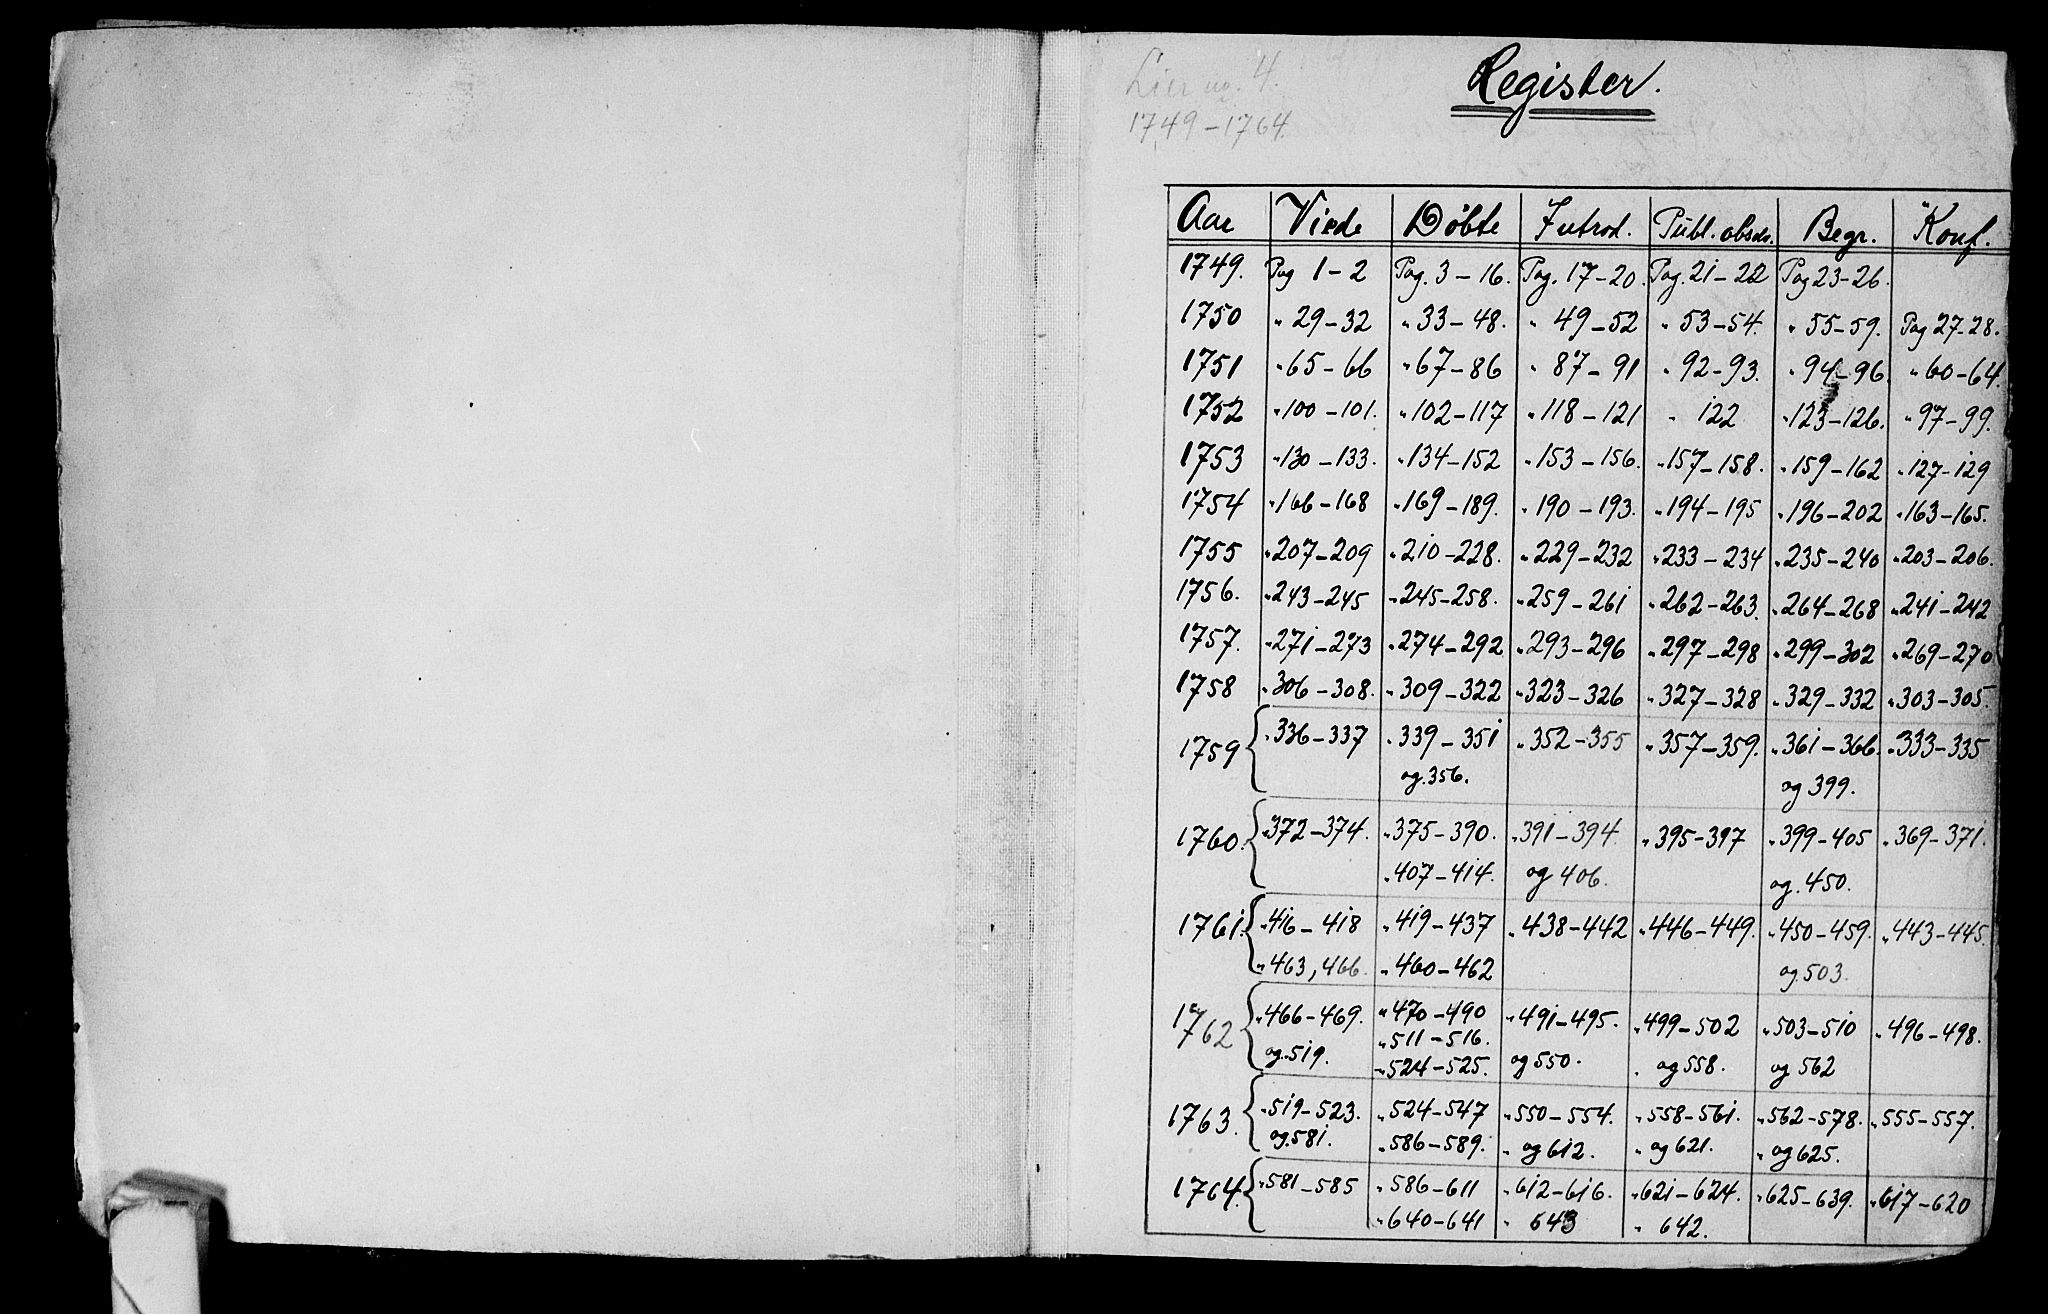 Lier no. 4.
1749-1764.
Register.
Aar Viede Döbte Introd. Publ. absolv. Begr. Konf.
1749. Pag 1-2 Pag. 3-16. Pag. 17-20. Pag. 21-22 Pag 23-26.
1750 " 29-32 " 33-48. " 49-52 " 53-54. " 55-59. Pag 27-28.
1751 " 65-66 " 67-86 " 87-91 " 92-93. " 94-96. " 60-64.
1752 " 100-101. " 102-117 " 118-121 " 122 " 123-126. " 97-99.
1753 " 130-133. " 134-152 " 153-156. " 157-158. " 159-162 " 127-129
1754 " 166-168 " 169-189. " 190-193. " 194-195 " 196-202 " 163-165.
1755 " 207-209 " 210-228. " 229-232 " 233-234 " 235-240 " 203-206.
1756. " 243-245 " 245-258. " 259-261 " 262-263. " 264-268 " 241-242
1757. " 271-273 " 274-292 " 293-296 " 297-298 " 299-302 " 269-270
1758 " 306-308. " 309-322 " 323-326 " 327-328 " 329-332 " 303-305.
1759 " 336-337 " 339-351 " 352-355 " 357-359. " 361-366. " 333-335
og. 356. og 399.
1760. " 372-374. " 375-390. " 391-394 " 395-397 " 399-405 " 369-371.
" 407-414. og 406. og. 450.
1761. " 416-418 " 419-437 " 438-442 " 446-449. " 450-459. " 443-445.
" 463, 466. " 460-462 og. 503.
1762 " 466-469. " 470-490 " 491-495. " 499-502 " 503-510 " 496-498.
og. 519. " 511-516. og 550. " og 558. og 562
" 524-525.
1763. " 519-523. " 524-547 " 550-554. " 558-561. " 562-578. " 555-557.
og. 581. " 586-589. " og 612. " og 621. " og 625.
1764. " 581-585 " 586-611 " 612-616. " 621-624. " 625-639. " 617-620
" 640-641 " 643 " 642.